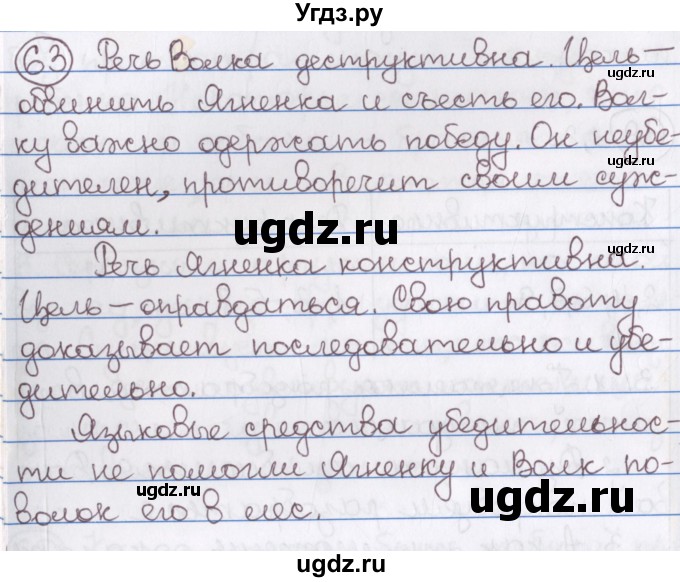 Угдз.ру
63 Речь Волка деструктивна. Цель –
обвинить Ягненка и съесть его. Вол-
ку важно одержать победу. Он неубе-
дителен, противоречит своим суж-
дениям.
Речь Ягненка конструктивна.
Цель – оправдаться. Свою правоту
доказывает последовательно и убе-
дительно.
Языковые средства убедительнос-
ти не помогли Ягненку и Волк по-
волок его в лес.
ugdz.ru
ugdz.ru
ugdz.ru
ugdz.ru
ugdz.ru
ugdz.ru
ugdz.ru
ugdz.ru
ugdz.ru
ugdz.ru
ugdz.ru